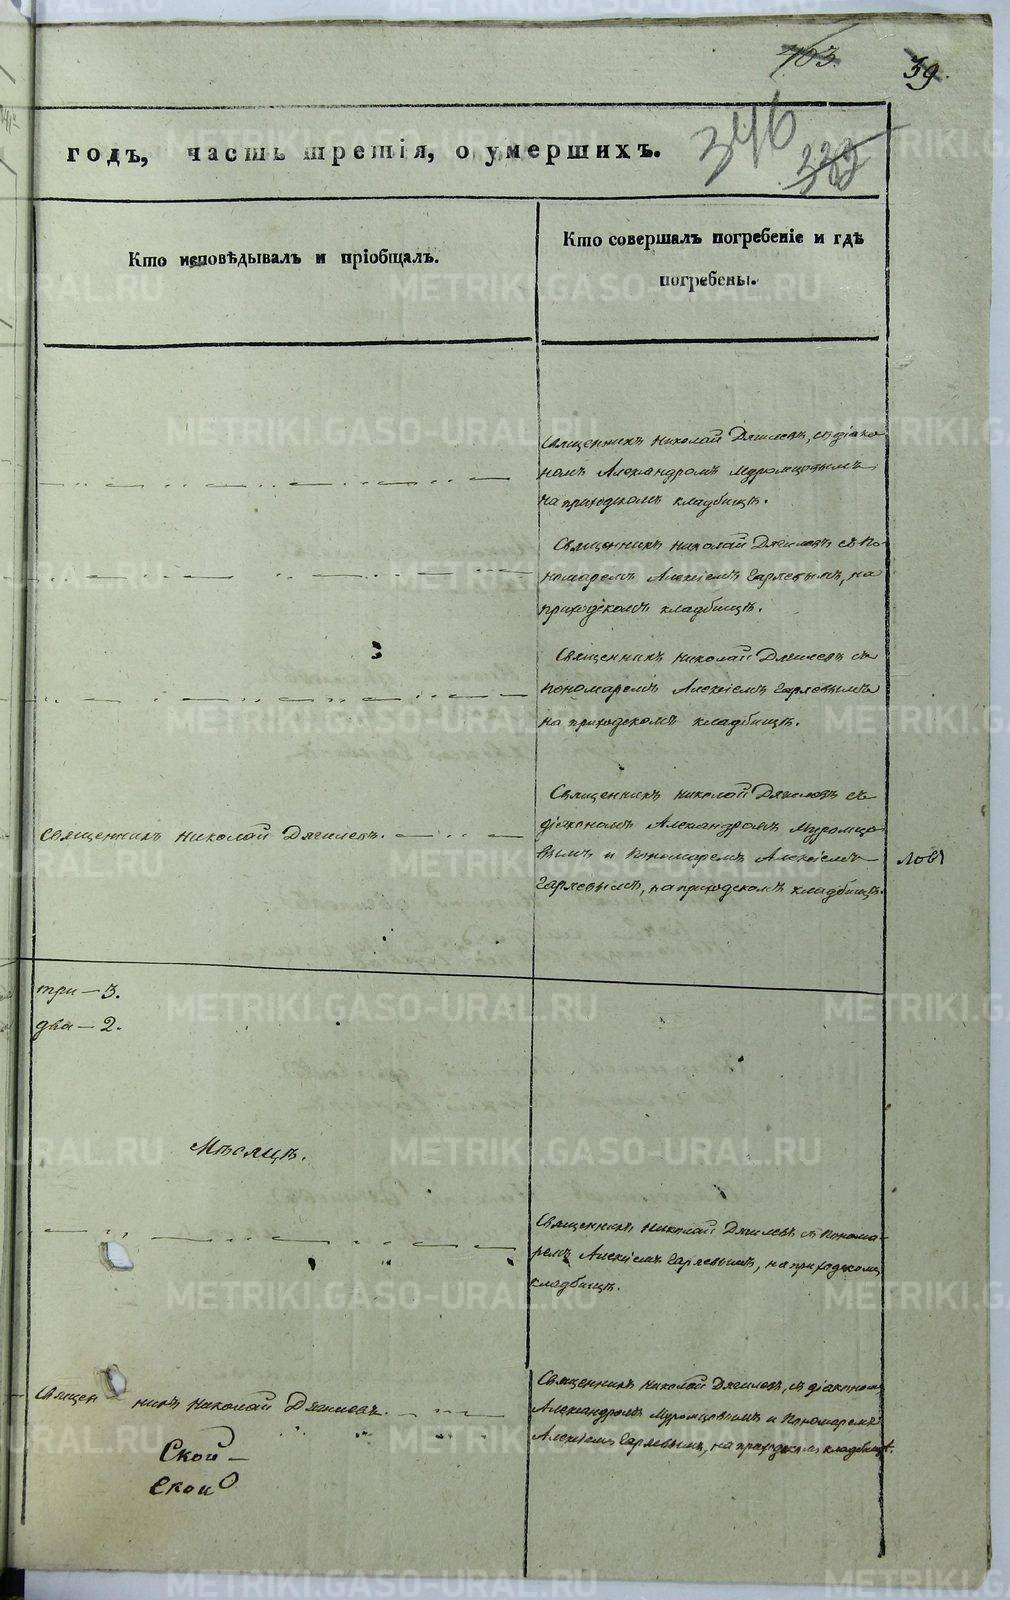 403.
39.
346
332
годъ, часть третія, о умершихъ.
Кто исповѣдывалъ и пріобщалъ.
Кто совершалъ погребеніе и гдѣ
погребены.
Священникъ Николай Дягилевъ, съ діако
номъ Александромъ Муромцовымъ
на приходскомъ кладбищѣ.
Священникъ Николай Дягилевъ съ По-
номаремъ Алексіемъ Гаряевымъ, на
приходскомъ кладбищѣ.
Священникъ Николай Дягилевъ съ
пономаремъ Алексіемъ Гаряевымъ
на приходскомъ кладбищѣ.
Священникъ Николай Дягилевъ.
Священникъ Николай Дягилевъ съ
діакономъ Александромъ Муромцо-
вымъ и Пономаремъ Алексіемъ
Гаряевымъ, на приходскомъ кладбищѣ.
три – 3.
два – 2.
Мѣсяцъ.
Священникъ Николай Дягилевъ съ понома-
ремъ Алексіемъ Гаряевымъ, на приходскомъ
кладбищѣ.
Священникъ Николай Дягилевъ.
Священникъ Николай Дягилевъ, съ діакономъ
Александромъ Муромцовымъ и Пономаремъ
Алексіемъ Гаряевымъ, на приходскомъ кладбищѣ.
Ской –
Ской
METRIKI.GASO-URAL.RU